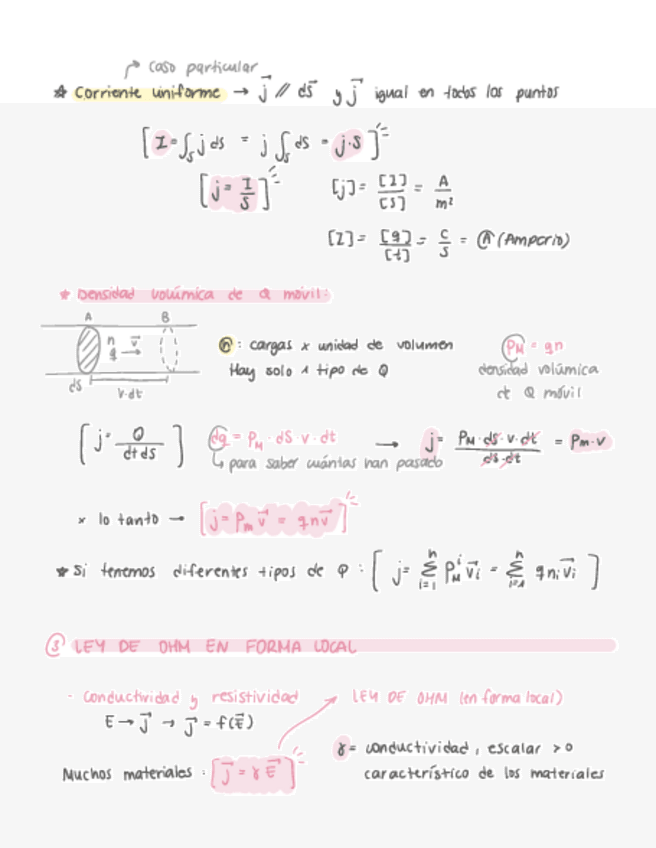 ↱ Caso particular
☆ Corriente uniforme → j⃗ // ds⃗ y j⃗ igual en todos los puntos
[ I = ∫ₛ j ds = j ∫ₛ ds = j·S ]
[ j = I/S ] [j] = [I]/[S] = A/m²
[I] = [q]/[t] = C/s = A (Amperio)
★ Densidad volúmica de Q móvil:
A B
n q v⃗ →
dS
v·dt
n : cargas x unidad de volumen
Hay solo 1 tipo de Q
ρM = qn
densidad volúmica
de Q móvil
[ j = Q/(dt ds) ] dq = ρM · dS · v · dt → j = (ρM · ds · v · dt)/(ds · dt) = ρm · v
↳ para saber cuántas han pasado
x lo tanto → [ j = ρm v⃗ = q n v⃗ ]
★ Si tenemos diferentes tipos de Q : [ j = Σ(i=1, n) ρMⁱ v⃗i = Σ(i=1, n) q ni v⃗i ]
③ LEY DE OHM EN FORMA LOCAL
- Conductividad y resistividad
LEY DE OHM (en forma local)
E → j⃗ → j⃗ = f(E⃗)
Muchos materiales : [ j⃗ = γ E⃗ ]
γ = conductividad, escalar > 0
característico de los materiales